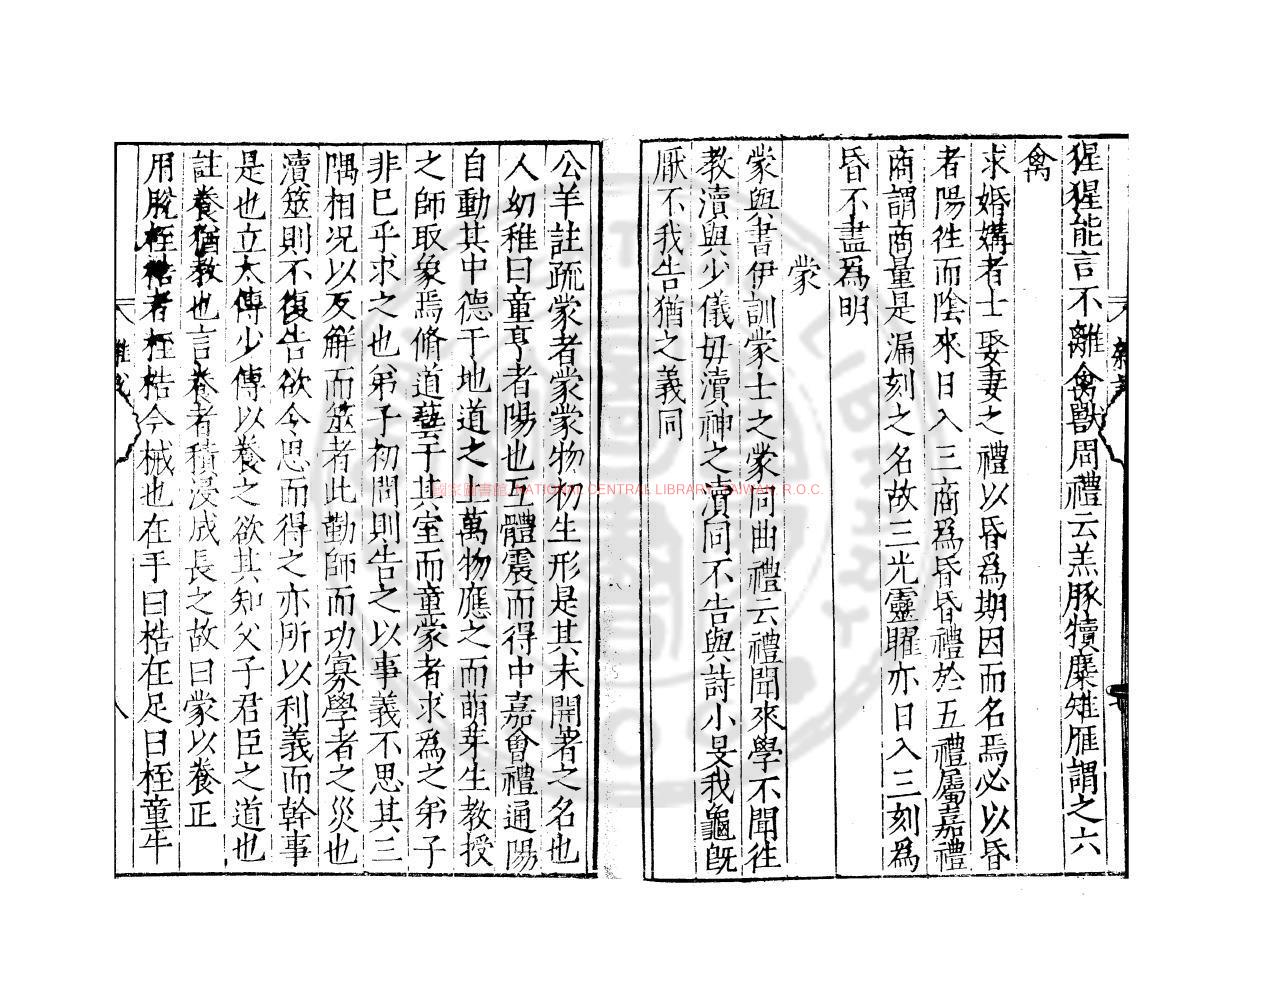 猩猩能言不離禽獸周禮云羔豚犢麋雉雁謂之六
禽
求婚媾者士娶妻之禮以昏為期因而名焉必以昏
者陽徃而陰來日入三商為昏昏禮於五禮屬嘉禮
商謂商量是漏刻之名故三光靈曜亦日入三刻為
昏不盡為明
蒙
蒙與書伊訓蒙士之蒙同曲禮云禮聞來學不聞徃
教瀆與少儀毋瀆神之瀆同不告與詩小旻我龜旣
厭不我告猶之義同
公羊註疏蒙者蒙蒙物初生形是其未開著之名也
人幼稚曰童亨者陽也互體震而得中嘉會禮通陽
自動其中德于地道之上萬物應之而萌芽生教授
之師取象焉脩道藝于其室而童蒙者求為之弟子
非巳乎求之也弟子初問則告之以事義不思其三
隅相况以反解而筮者此勤師而功寡學者之災也
瀆筮則不復告欲令思而得之亦所以利義而幹事
是也立太傅少傅以養之欲其知父子君臣之道也
註養猶教也言養者積浸成長之故曰蒙以養正
用脫桎梏者桎梏今械也在手曰梏在足曰桎童牛
國家圖書館 NATIONAL CENTRAL LIBRARY, TAIWAN, R.O.C.